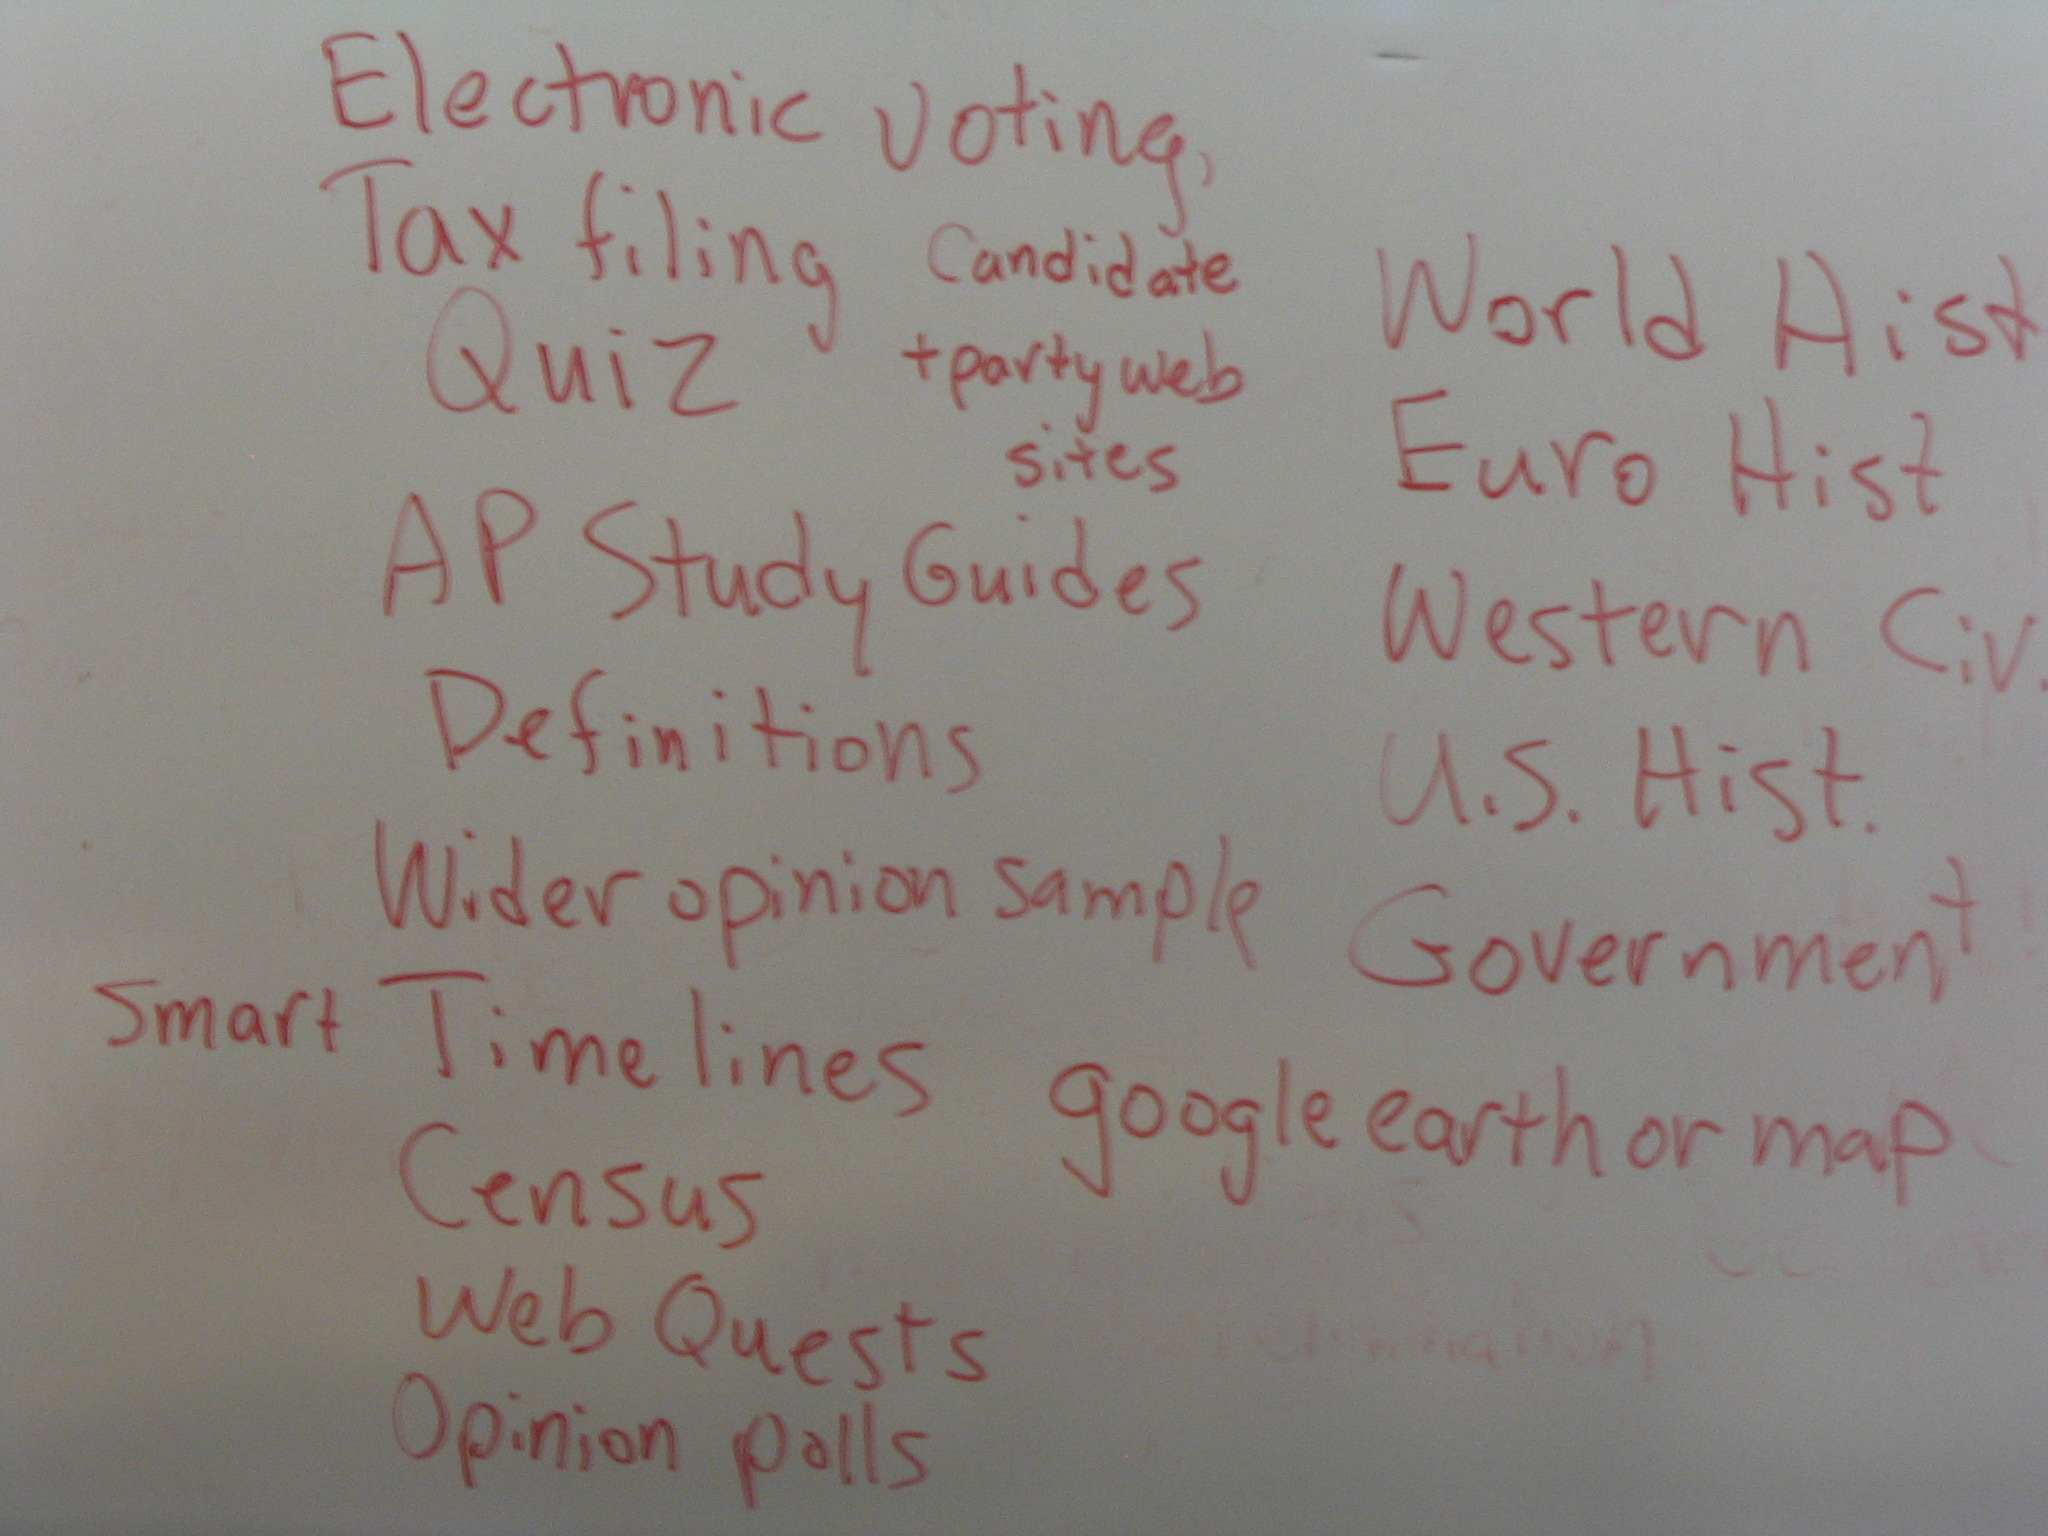 Electronic voting,
Tax filing
Candidate
+ party web
sites
Quiz
AP Study Guides
Definitions
Wider opinion sample
Smart Timelines
Census
Web Quests
Opinion polls
World Hist
Euro Hist
Western Civ.
U.S. Hist.
Government
google earth or map